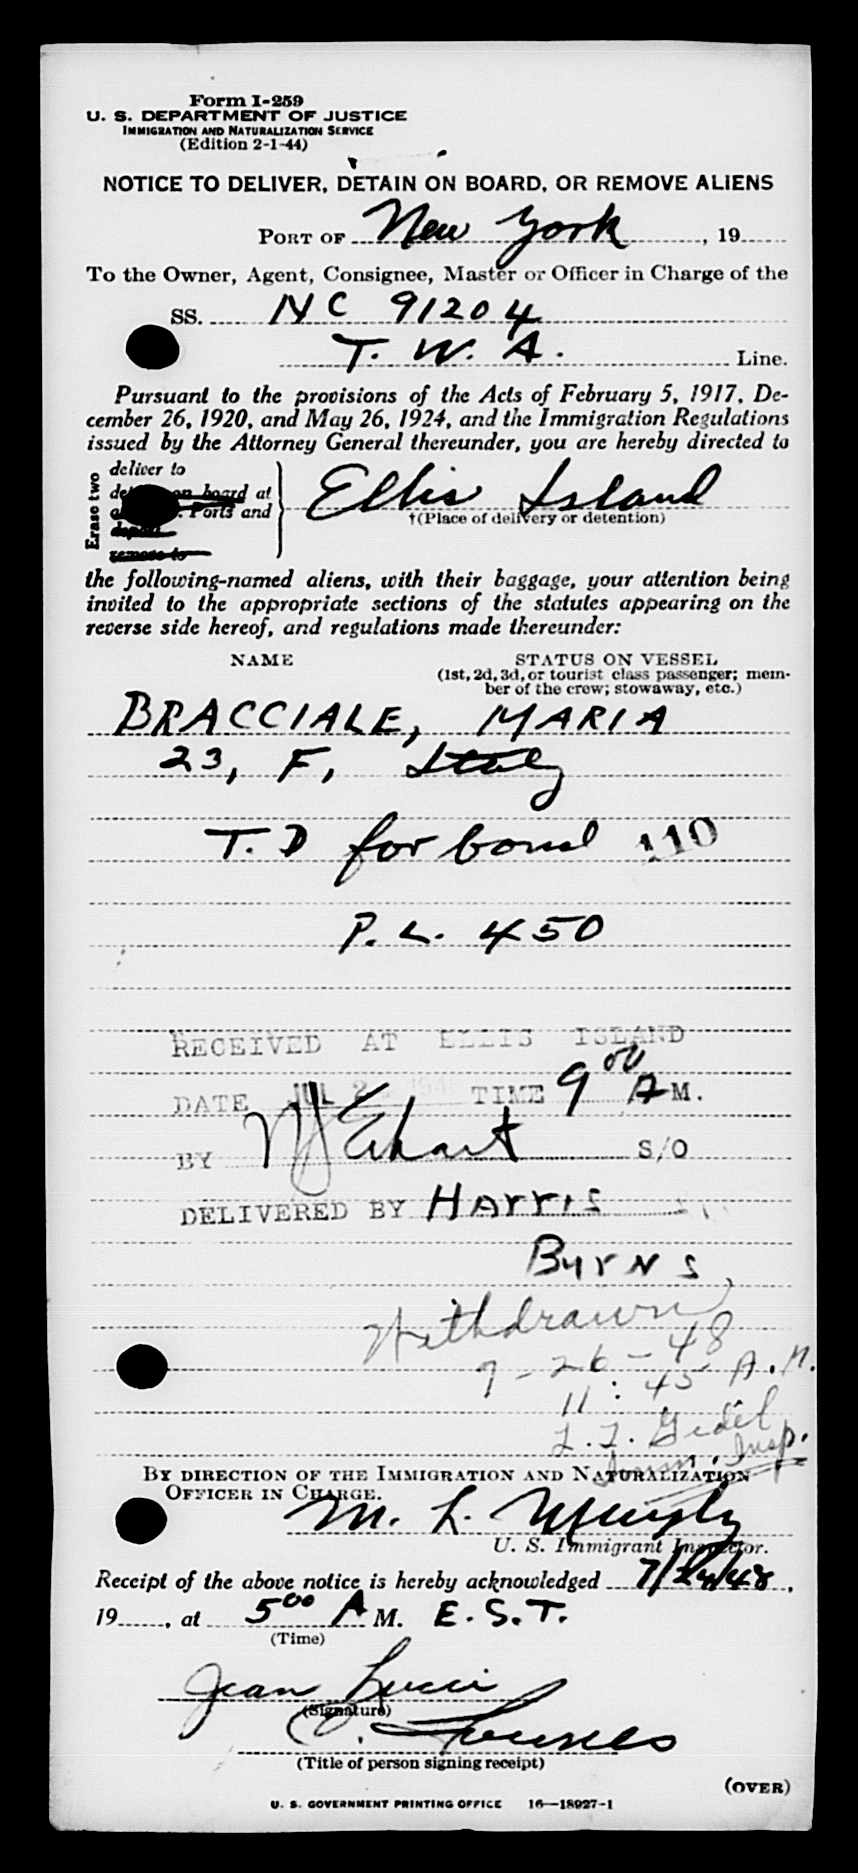 Form I-259
U. S. DEPARTMENT OF JUSTICE
IMMIGRATION AND NATURALIZATION SERVICE
(Edition 2-1-44)
NOTICE TO DELIVER, DETAIN ON BOARD, OR REMOVE ALIENS
PORT OF New York, 19
To the Owner, Agent, Consignee, Master or Officer in Charge of the
SS. NC 91204
T. W. A. Line.
Pursuant to the provisions of the Acts of February 5, 1917, De-
cember 26, 1920, and May 26, 1924, and the Immigration Regulations
issued by the Attorney General thereunder, you are hereby directed to
Erase two
deliver to
on board at
Ports and
remove to
Ellis Island
†(Place of delivery or detention)
the following-named aliens, with their baggage, your attention being
invited to the appropriate sections of the statutes appearing on the
reverse side hereof, and regulations made thereunder:
NAME STATUS ON VESSEL
(1st, 2d, 3d, or tourist class passenger; mem-
ber of the crew; stowaway, etc.)
BRACCIALE, MARIA
23, F, Italy
T. D for bond 110
P. L. 450
RECEIVED AT ELLIS ISLAND
DATE JUL 2 TIME 9 00 A M.
BY S/O
DELIVERED BY HArris
Byrns
Withdrawn
7-26-48
11:45 A.M.
Imm. Insp.
BY DIRECTION OF THE IMMIGRATION AND NATURALIZATION
OFFICER IN CHARGE.
M. L. Murphy
U. S. Immigrant Inspector.
Receipt of the above notice is hereby acknowledged 7/24/48,
19, at 5 00 A M. E.S.T.
(Time)
Jean
(Signature)
(Title of person signing receipt)
(OVER)
U. S. GOVERNMENT PRINTING OFFICE 16—18927-1